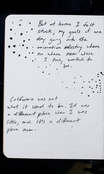 But at home I felt
stuck, my goals of one
day going into the
animation industry where
no where near where
I truly wanted to
California was not
what it used to be. It was
a different place when I was
little, and it's a different
place now.